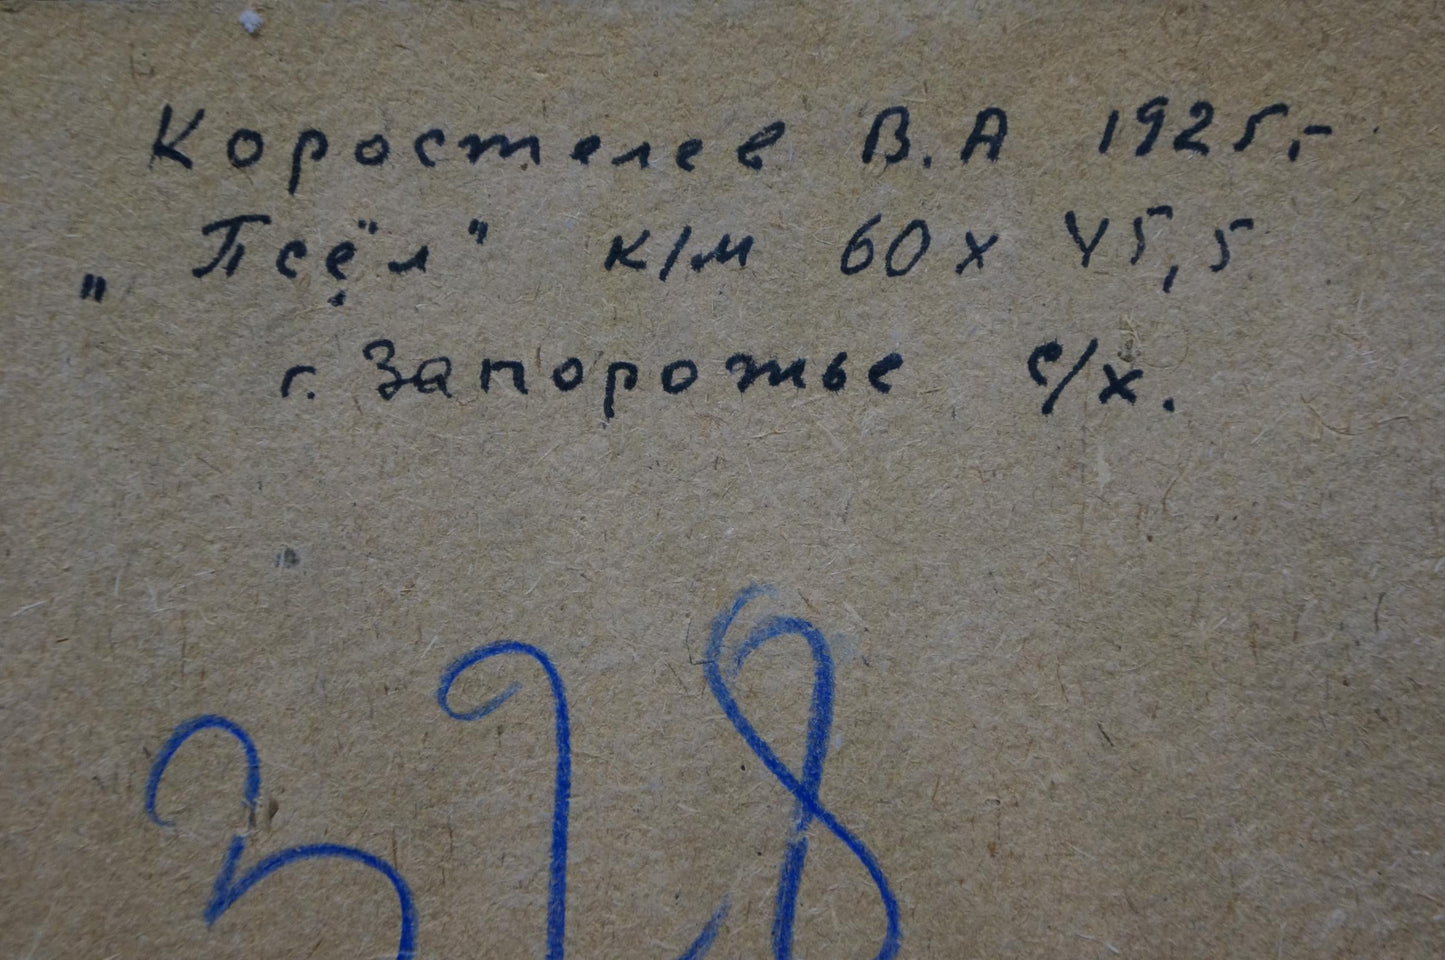 Коростелев В.А 1925,-
„Псёл" к/м 60 х 45,5
г. Запорожье с/х.